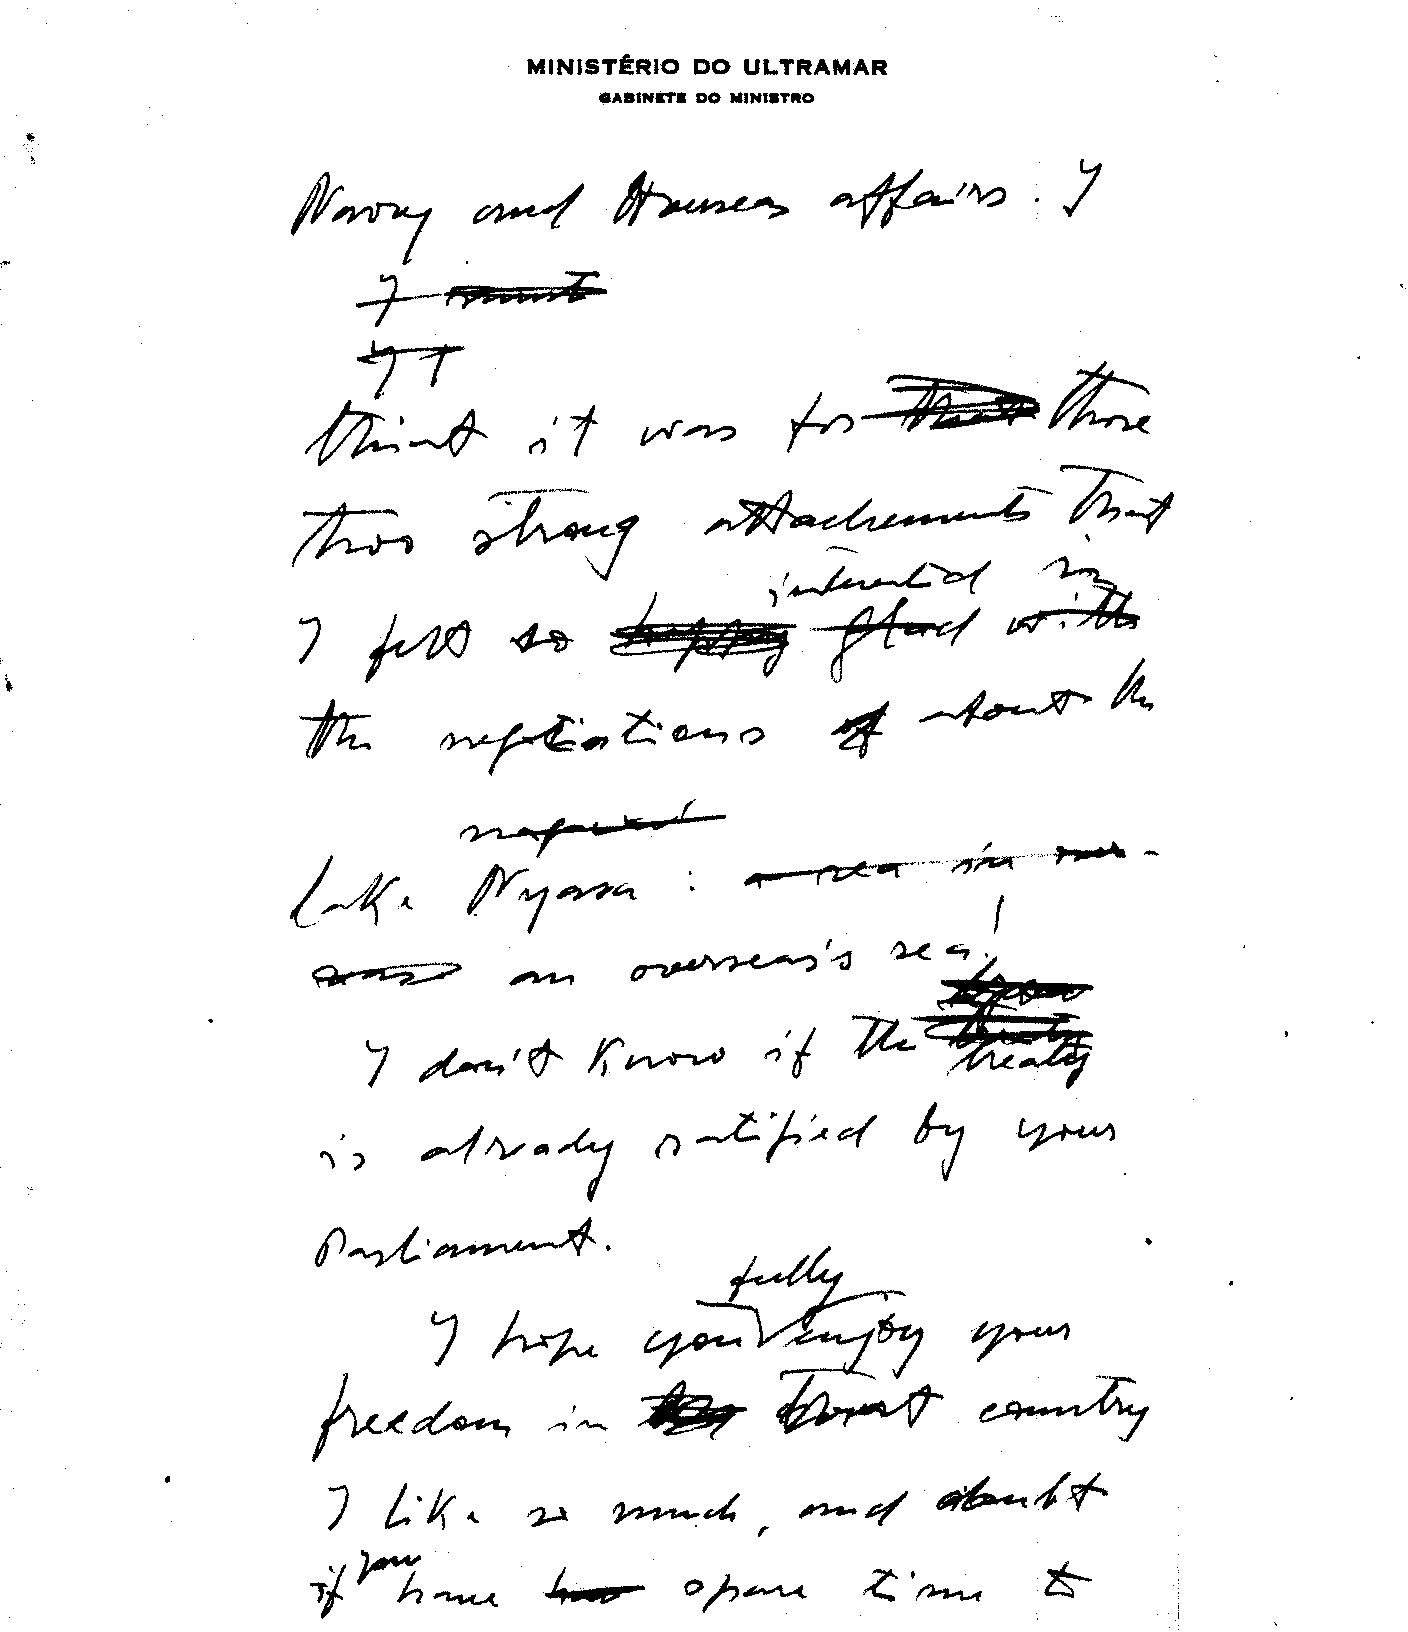 MINISTÉRIO DO ULTRAMAR
GABINETE DO MINISTRO
Navy and Overseas affairs. I
I
I T
think it was for those
two strong attachements that
interested in
I felt so happy glad with
the negotiations of about the
Lake Nyasa: a sea in
an overseas's sea!
I don't know if the treaty
is already ratified by your
Parliament.
fully
I hope you enjoy your
freedom in that country
I like so much, and doubt
you
if have spare time to